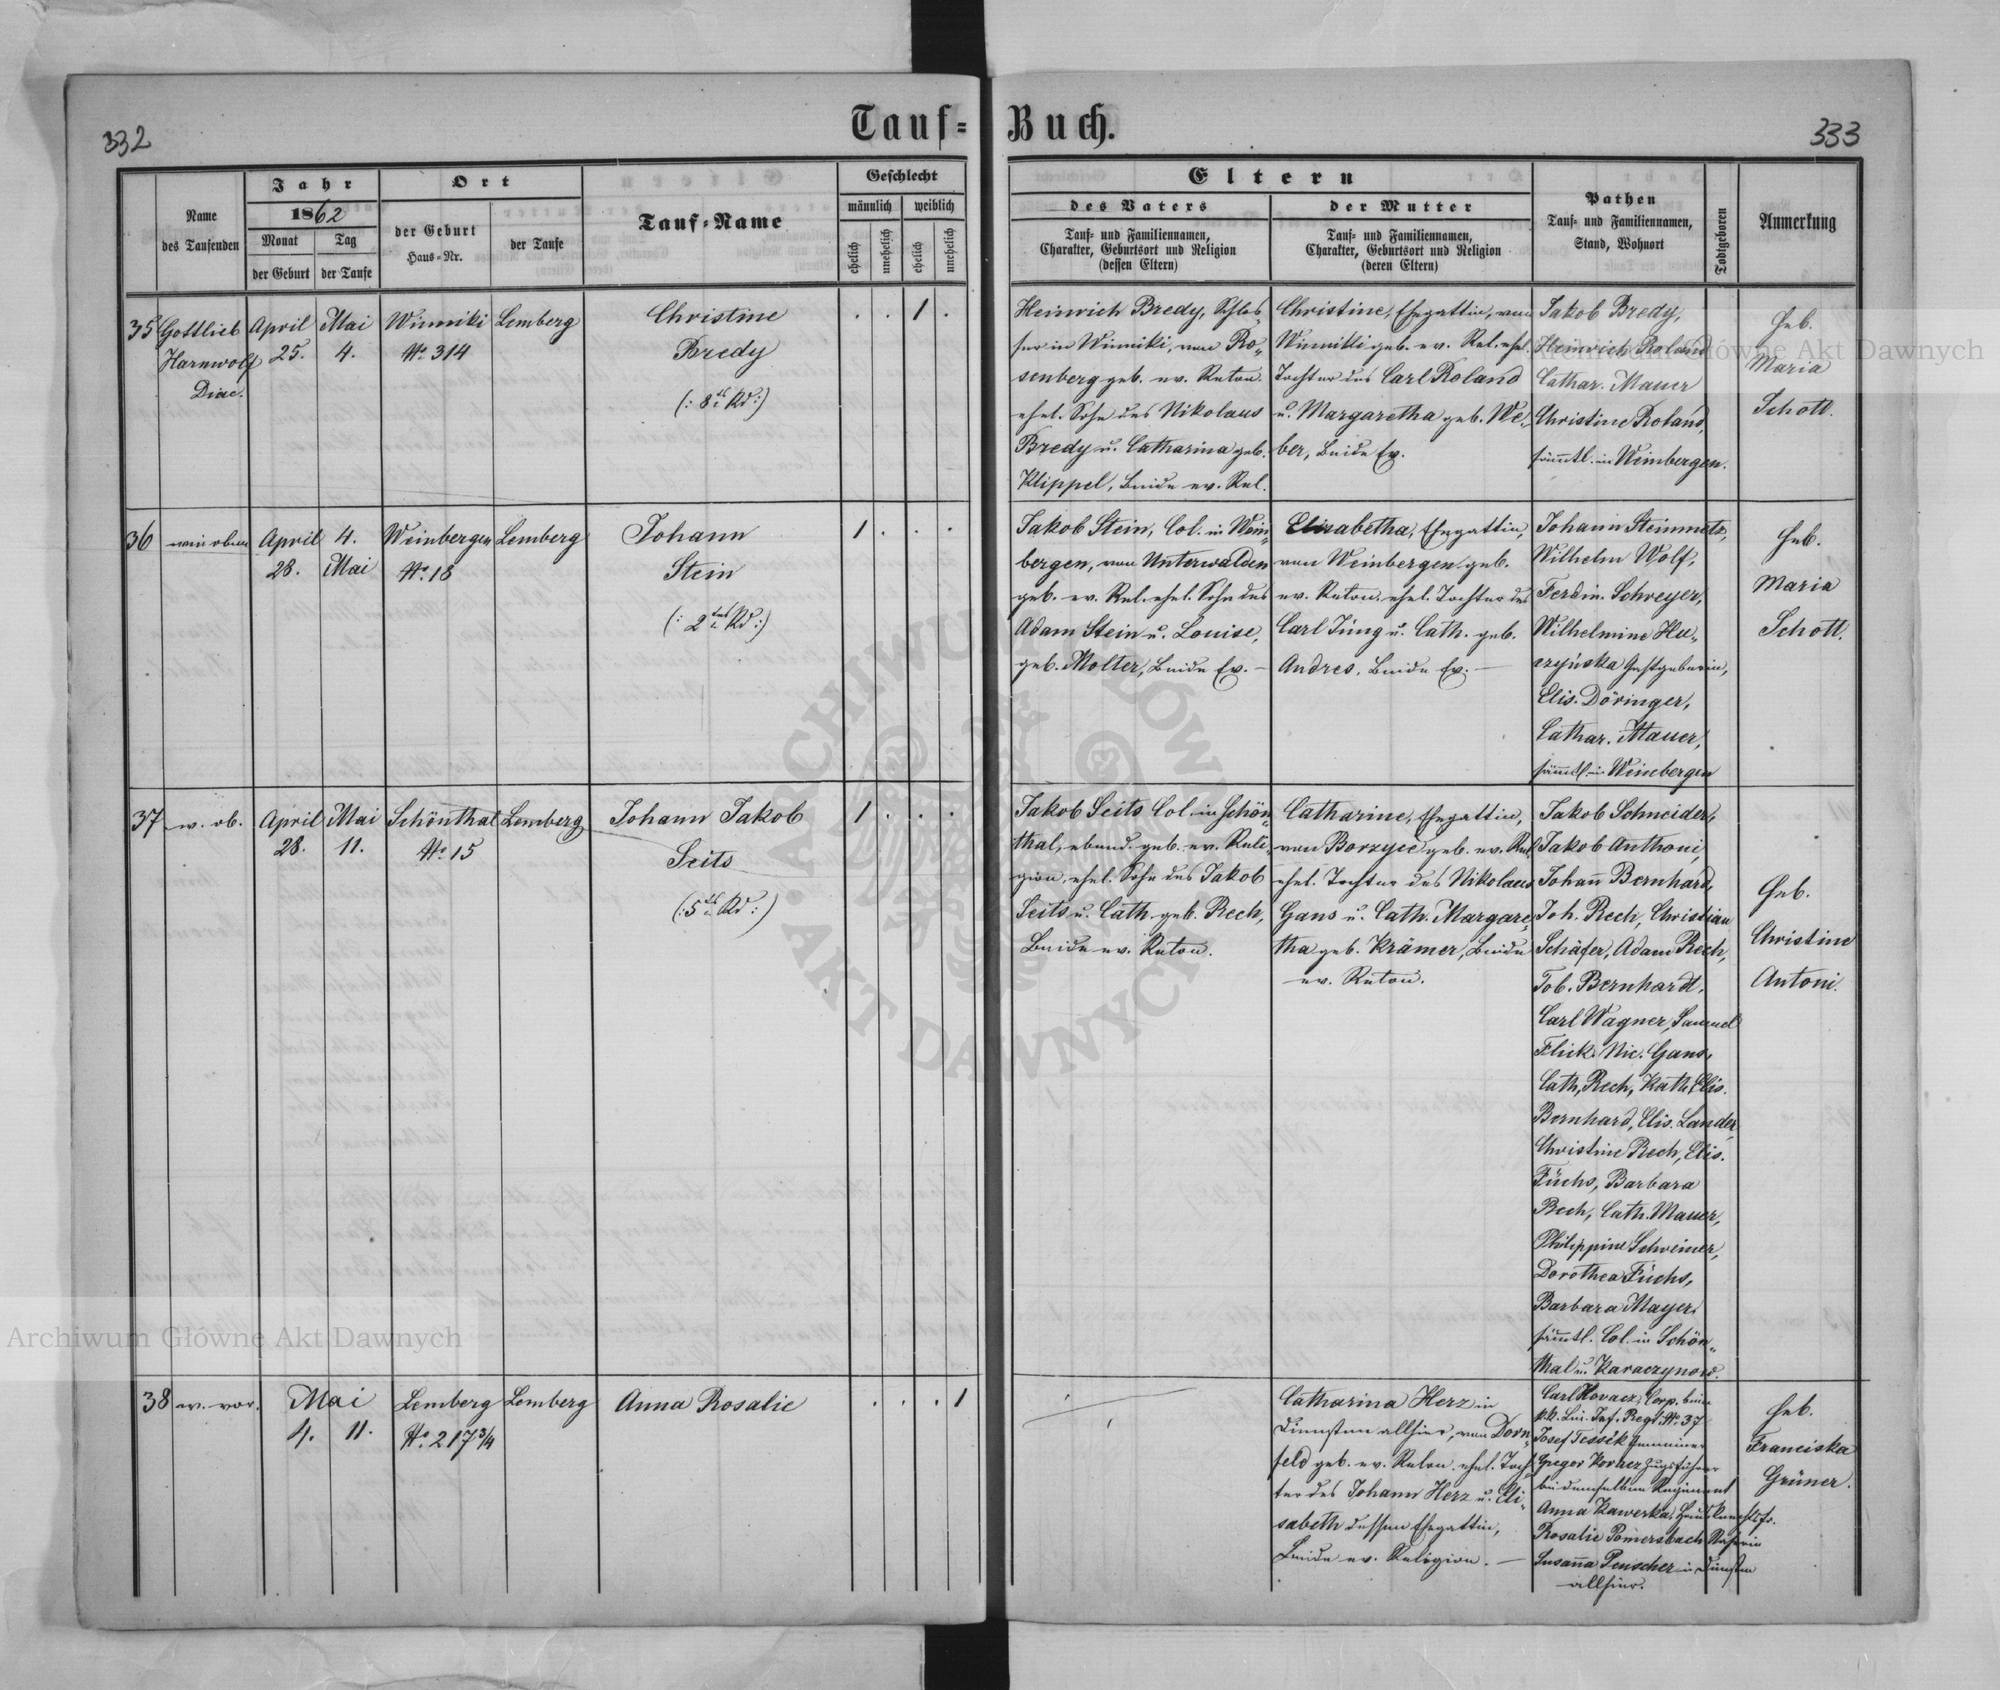 332
Tauf=Buch.
333
Name
des Taufenden
Jahr
1862
Monat
der Geburt
Tag
der Taufe
Ort
der Geburt
Haus=Nr.
der Taufe
Tauf=Name
Geschlecht
männlich
weiblich
ehelich
unehelich
ehelich
unehelich
Eltern
des Vaters
Tauf= und Familiennamen,
Charakter, Geburtsort und Religion
(dessen Eltern)
der Mutter
Tauf= und Familiennamen,
Charakter, Geburtsort und Religion
(deren Eltern)
Pathen
Tauf= und Familiennamen,
Stand, Wohnort
Todtgeboren
Anmerkung
35
Gottlieb
Harnwolf
Diac.
April
25.
Mai
4.
Winniki
No. 314
Lemberg
Christine
Bredy
(: 8tes Kd :)
. . 1 .
Heinrich Bredy, Schlos-
ser in Winniki, von Ro-
senberg geb. ev. Reton.
ehel. Sohn des Nikolaus
Bredy u. Catharina geb.
Klippel, beide ev. Rel.
Christine, Ehegattin, von
Winniki geb. ev. Rel. ehel.
Tochter des Carl Roland
u. Margaretha geb. We-
ber, beide Ev.
Jakob Bredy,
Heinrich Roland
Cathar. Mauer
Christine Roland,
sämmtl. in Weinbergen.
Heb.
Maria
Schott.
36
wie oben
April
28.
4.
Mai
Weinbergen
No. 18
Lemberg
Johann
Stein
(: 2tes Kd :)
1 . . .
Jakob Stein, Col. in Wein-
bergen, von Unterwalden
geb. ev. Rel. ehel. Sohn des
Adam Stein u. Louise,
geb. Molter, beide Ev. —
Elisabetha, Ehegattin,
von Weinbergen geb.
ev. Reton. ehel. Tochter des
Carl Jung u. Cath. geb.
Andres, beide Ev. —
Johann Steinmetz,
Wilhelm Wolf,
Ferdin. Schreyer,
Wilhelmine Hu-
czyńska Gastgeberin,
Elis. Döringer,
Cathar. Mauer,
sämmtl. in Weinbergen
Heb.
Maria
Schott.
37
w. ob.
April
28.
Mai
11.
Schönthal
No. 15
Lemberg
Johann Jakob
Seits
(: 5tes Kd :)
1 . . .
Jakob Seits Col. in Schön-
thal, ebend. geb. ev. Reli-
gion, ehel. Sohn des Jakob
Seits u. Cath. geb. Rech,
beide ev. Reton.
Catharine, Ehegattin,
von Borzyec geb. ev. Rel.
ehel. Tochter des Nikolaus
Gans u. Cath. Margare-
tha geb. Krämer, beide
ev. Reton.
Jakob Schneider,
Jakob Anthoni,
Johañ Bernhard,
Joh. Rech, Christian
Schäfer, Adam Rech,
Tob. Bernhardt,
Carl Wagner, Samuel
Flick, Nic. Gans,
Cath. Rech, Kath. Elis.
Bernhard, Elis. Lander,
Christine Rech, Elis.
Füchs, Barbara
Rech, Cath. Mauer,
Philippine Schreiner,
Dorothea Füchs,
Barbara Mayer,
sämmtl. Col. in Schön-
thal u. Karaczynow.
Heb.
Christine
Antoni.
38
w. vor.
Mai
4. 11.
Lemberg
No. 217 3/4
Lemberg
Anna Rosalie
. . . 1
Catharina Herz in
Diensten allhier, von Dorn-
feld geb. ev. Relon. ehel. Toch-
ter des Johann Herz u. Eli-
sabeth dessen Ehegattin,
beide ev. Religion. —
Carl Kovacz, Corp. beim
kk. Lin. Inf. Regt. No. 37
Josef Tessik Gemeiner
Gregor Korhez Zugsführer
bei demselben Regiment
Anna Kawerka, Hausknechtsfr.
Rosalie Pomersbach Näherin
Susaña Penscher in Diensten
allhier.
Heb.
Franciska
Grüner.
Archiwum Główne Akt Dawnych
Archiwum Główne Akt Dawnych